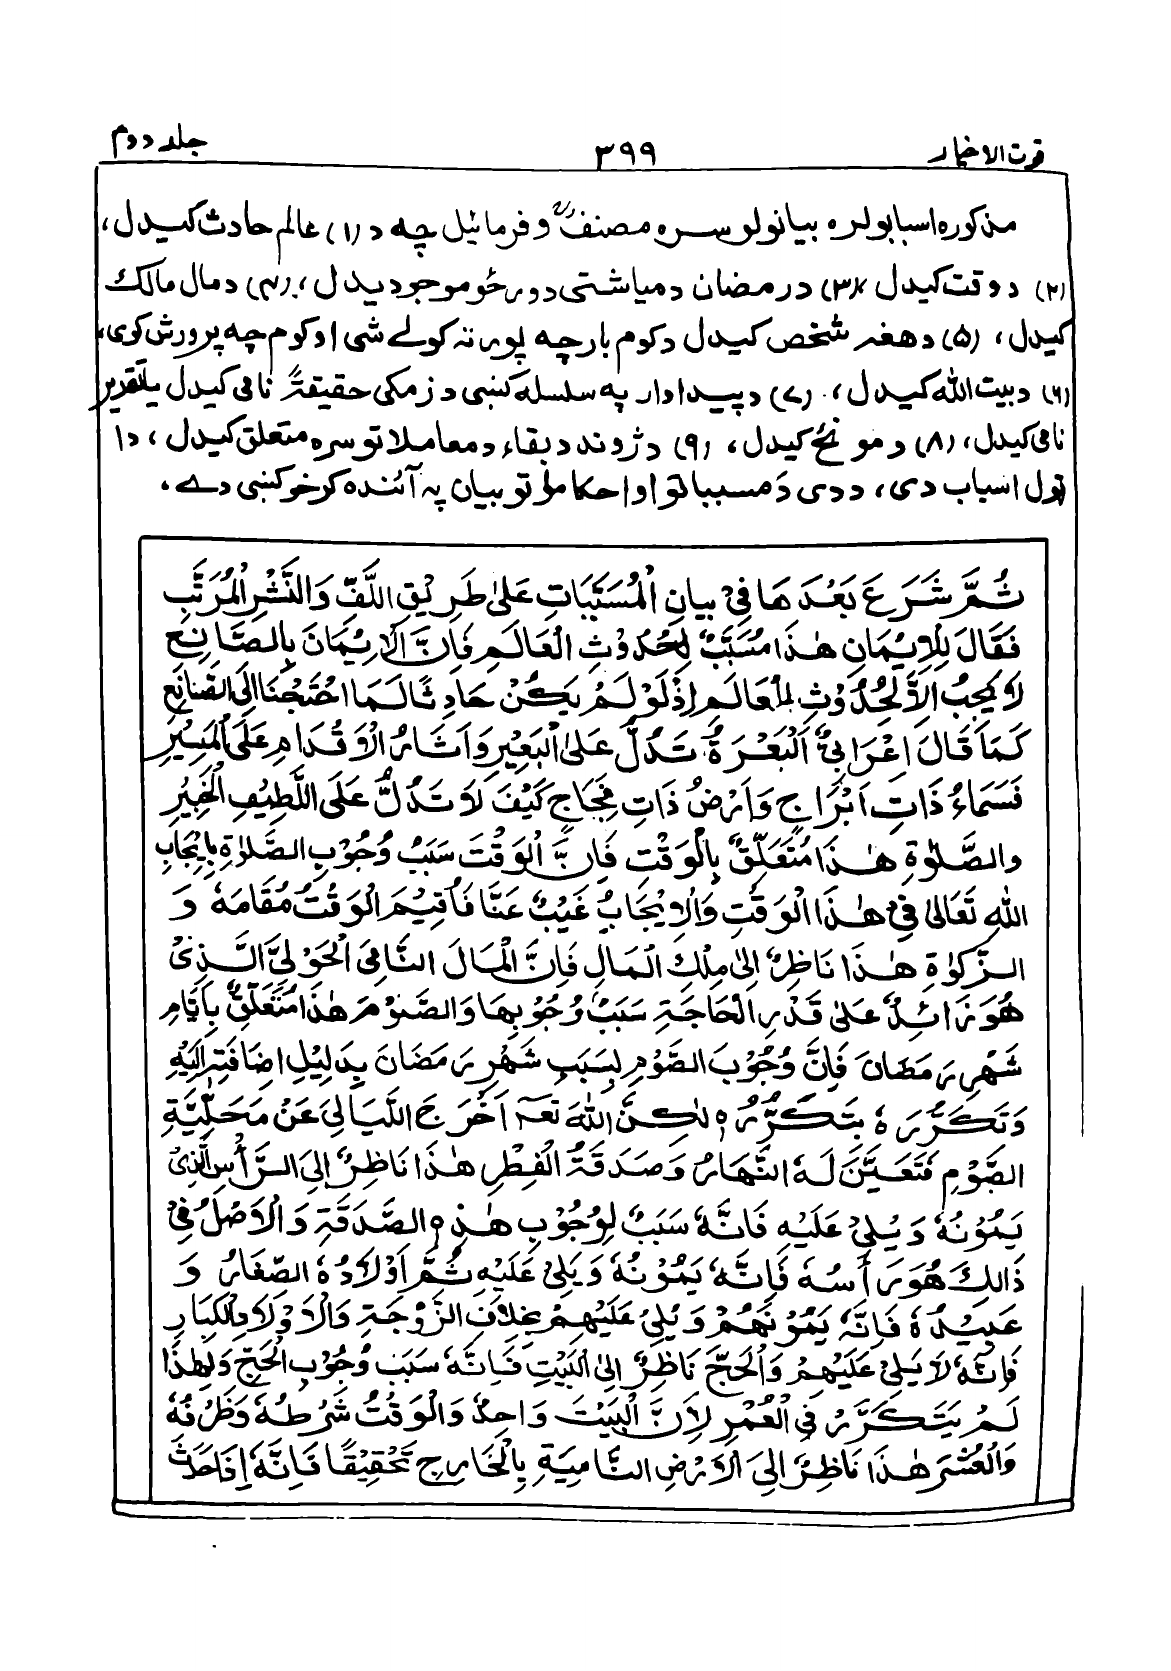 قرت الاخیار ۳۹۹ جلد دوم
مذکوره اسبابو لره بیانولو سره مصنفؒ وفرمائیل چه د (۱) عالم حادث کیدل،
(۲) د وقت کیدل (۳) د رمضان د میاشتی دورځو موجودیدل، (۴) د مال مالک
کیدل، (۵) د هغه شخص کیدل د کوم بار چه پورته کولے شی او کوم چه پرورش کوی،
(۶) د بیت الله کیدل، (۷) د پیداوار په سلسله کښی د زمکی حقیقةً نامی کیدل یا تقدیر
نامی کیدل، (۸) د مونځ کیدل، (۹) د ژوند د بقاء د معاملاتو سره متعلق کیدل، دا
ټول اسباب دی، د دی دَ مسبباتو او احکاماتو بیان په آئنده کرخو کښی دے.
ثُمَّ شَرَعَ بَعْدَهَا فِيْ بيانِ الْمُسَبَّبَاتِ عَلىٰ طَرِيْقِ اللَّفِّ وَالنَّشْرِ الْمُرَتَّبِ
فَقَالَ لِلْاِيْمَانِ هٰذَا مُسَبَّبٌ لِحُدُوْثِ الْعَالَمِ فَاِنَّ الْاِيْمَانَ بِالصَّانِعِ
لَا يَجِبُ اِلَّا لِحُدُوْثِ الْعَالَمِ اِذْ لَوْ لَمْ يَكُنْ حَادِثًا لَمَا احْتَجْنَا اِلَى الصَّانِعِ
كَمَا قَالَ اِعْرَابِيٌّ اَلْبَعْرَةُ تَدُلُّ عَلىٰ الْبَعِيْرِ وَاٰثَارُ الْاَقْدَامِ عَلَى الْمَسِيْرِ
فَسَمَاءُ ذَاتِ اَبْرَاجٍ وَاَرْضُ ذَاتِ فِجَاجٍ كَيْفَ لَا تَدُلُّ عَلَى اللَّطِيْفِ الْخَبِيْرِ
والصَّلٰوةِ هٰذَا مُتَعَلِّقٌ بِالْوَقْتِ فَاِنَّ الْوَقْتَ سَبَبُ وُجُوْبِ الصَّلٰوةِ بِاِيْجَابِ
اللهِ تَعَالىٰ فِيْ هٰذَا الْوَقْتِ وَالْاِيْجَابُ غَيْبٌ عَنَّا فَاُقِيْمَ الْوَقْتُ مُقَامَهٗ وَ
الزَّكٰوةِ هٰذَا نَاظِرٌ اِلىٰ مِلْكِ الْمَالِ فَاِنَّ الْمَالَ النَّامِيَ الْحَوْلِيَّ الَّذِيْ
هُوَ زَائِدٌ عَلىٰ قَدْرِ الْحَاجَةِ سَبَبُ وُجُوْبِهَا وَالصَّوْمِ هٰذَا مُتَعَلِّقٌ بِاَيَّامِ
شَهْرِ رَمَضَانَ فَاِنَّ وُجُوْبَ الصَّوْمِ بِسَبَبِ شَهْرِ رَمَضَانَ بِدَلِيْلِ اِضَافَتِهٖ اِلَيْهِ
وَتَكَرُّرِهٖ بِتَكَرُّرِهٖ لٰكِنَّ اللهَ تَعَ اَخْرَجَ اللَّيَالِيَ عَنْ مَحَلِّيَّةِ
الصَّوْمِ فَتَعَيَّنَ لَهٗ النَّهَارُ وَصَدَقَةُ الْفِطْرِ هٰذَا نَاظِرٌ اِلىَ الرَّأْسِ الَّذِيْ
يَمُوْنُهٗ وَيَلِيْ عَلَيْهِ فَاِنَّهٗ سَبَبٌ لِوُجُوْبِ هٰذِهِ الصَّدَقَةِ وَالْاَصْلُ فِيْ
ذَالِكَ هُوَ رَأْسُهٗ فَاِنَّهٗ يَمُوْنُهٗ وَيَلِيْ عَلَيْهِ ثُمَّ اَوْلَادُهُ الصِّغَارُ وَ
عَبِيْدُهٗ فَاِنَّهٗ يَمُوْنُهُمْ وَيَلِيْ عَلَيْهِمْ بِخِلَافِ الزَّوْجَةِ وَالْاَوْلَادِ الْكِبَارِ
فَاِنَّهٗ لَا يَلِيْ عَلَيْهِمْ وَالْحَجِّ نَاظِرٌ اِلىٰ الْبَيْتِ فَاِنَّهٗ سَبَبُ وُجُوْبِ الْحَجِّ وَلِهٰذَا
لَمْ يَتَكَرَّرْ فِي الْعُمْرِ لِاَنَّ الْبَيْتَ وَاحِدٌ وَالْوَقْتُ شَرْطُهٗ وَظَرْفُهٗ
وَالْعُشْرِ هٰذَا نَاظِرٌ اِلىَ الْاَرْضِ النَّامِيَةِ بِالْخَارِجِ تَحْقِيْقًا فَاِنَّهٗ اِذَا حَدَثَ